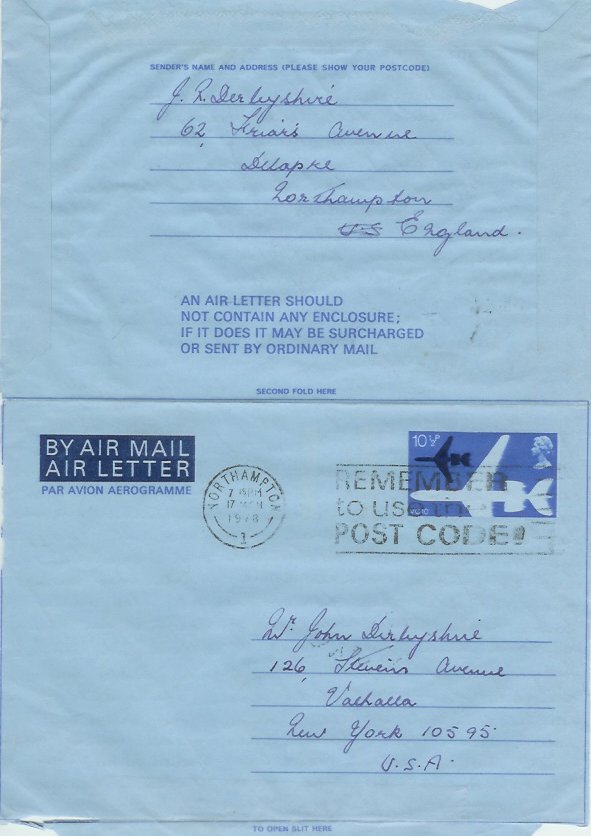 SENDER'S NAME AND ADDRESS (PLEASE SHOW YOUR POSTCODE)
J. R. Derbyshire
62, Friars Avenue
Delapre
Northampton
US England.
AN AIR LETTER SHOULD
NOT CONTAIN ANY ENCLOSURE;
IF IT DOES IT MAY BE SURCHARGED
OR SENT BY ORDINARY MAIL
SECOND FOLD HERE
BY AIR MAIL
AIR LETTER
PAR AVION AEROGRAMME
NORTHAMPTON
7 PM
17
1978
1
10½P
REMEMBER
to use the
POST CODE!
Mr John Derbyshire
126, Stevens Avenue
Valhalla
New York 10595
U.S.A.
TO OPEN SLIT HERE